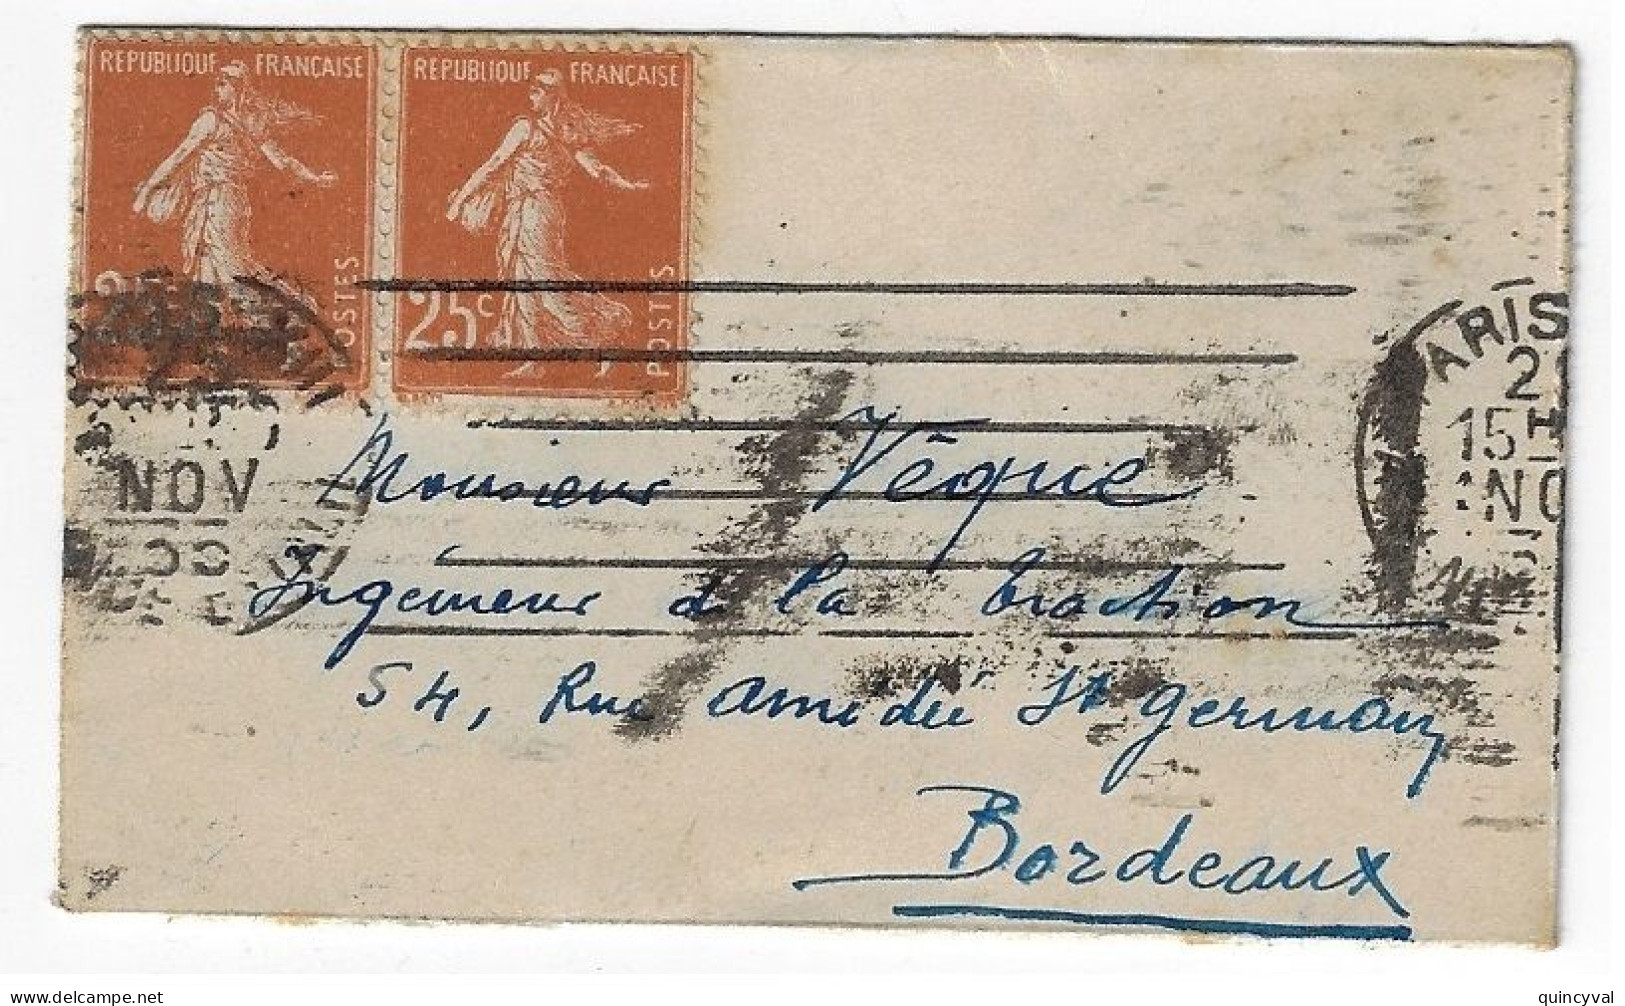 REPUBLIQUE FRANÇAISE
POSTES
REPUBLIQUE FRANÇAISE
25c
POSTES
NOV
PARIS
15H
NO
Monsieur Vêque
Ingénieur à la traction
54, Rue amédée St germain
Bordeaux
quincyval